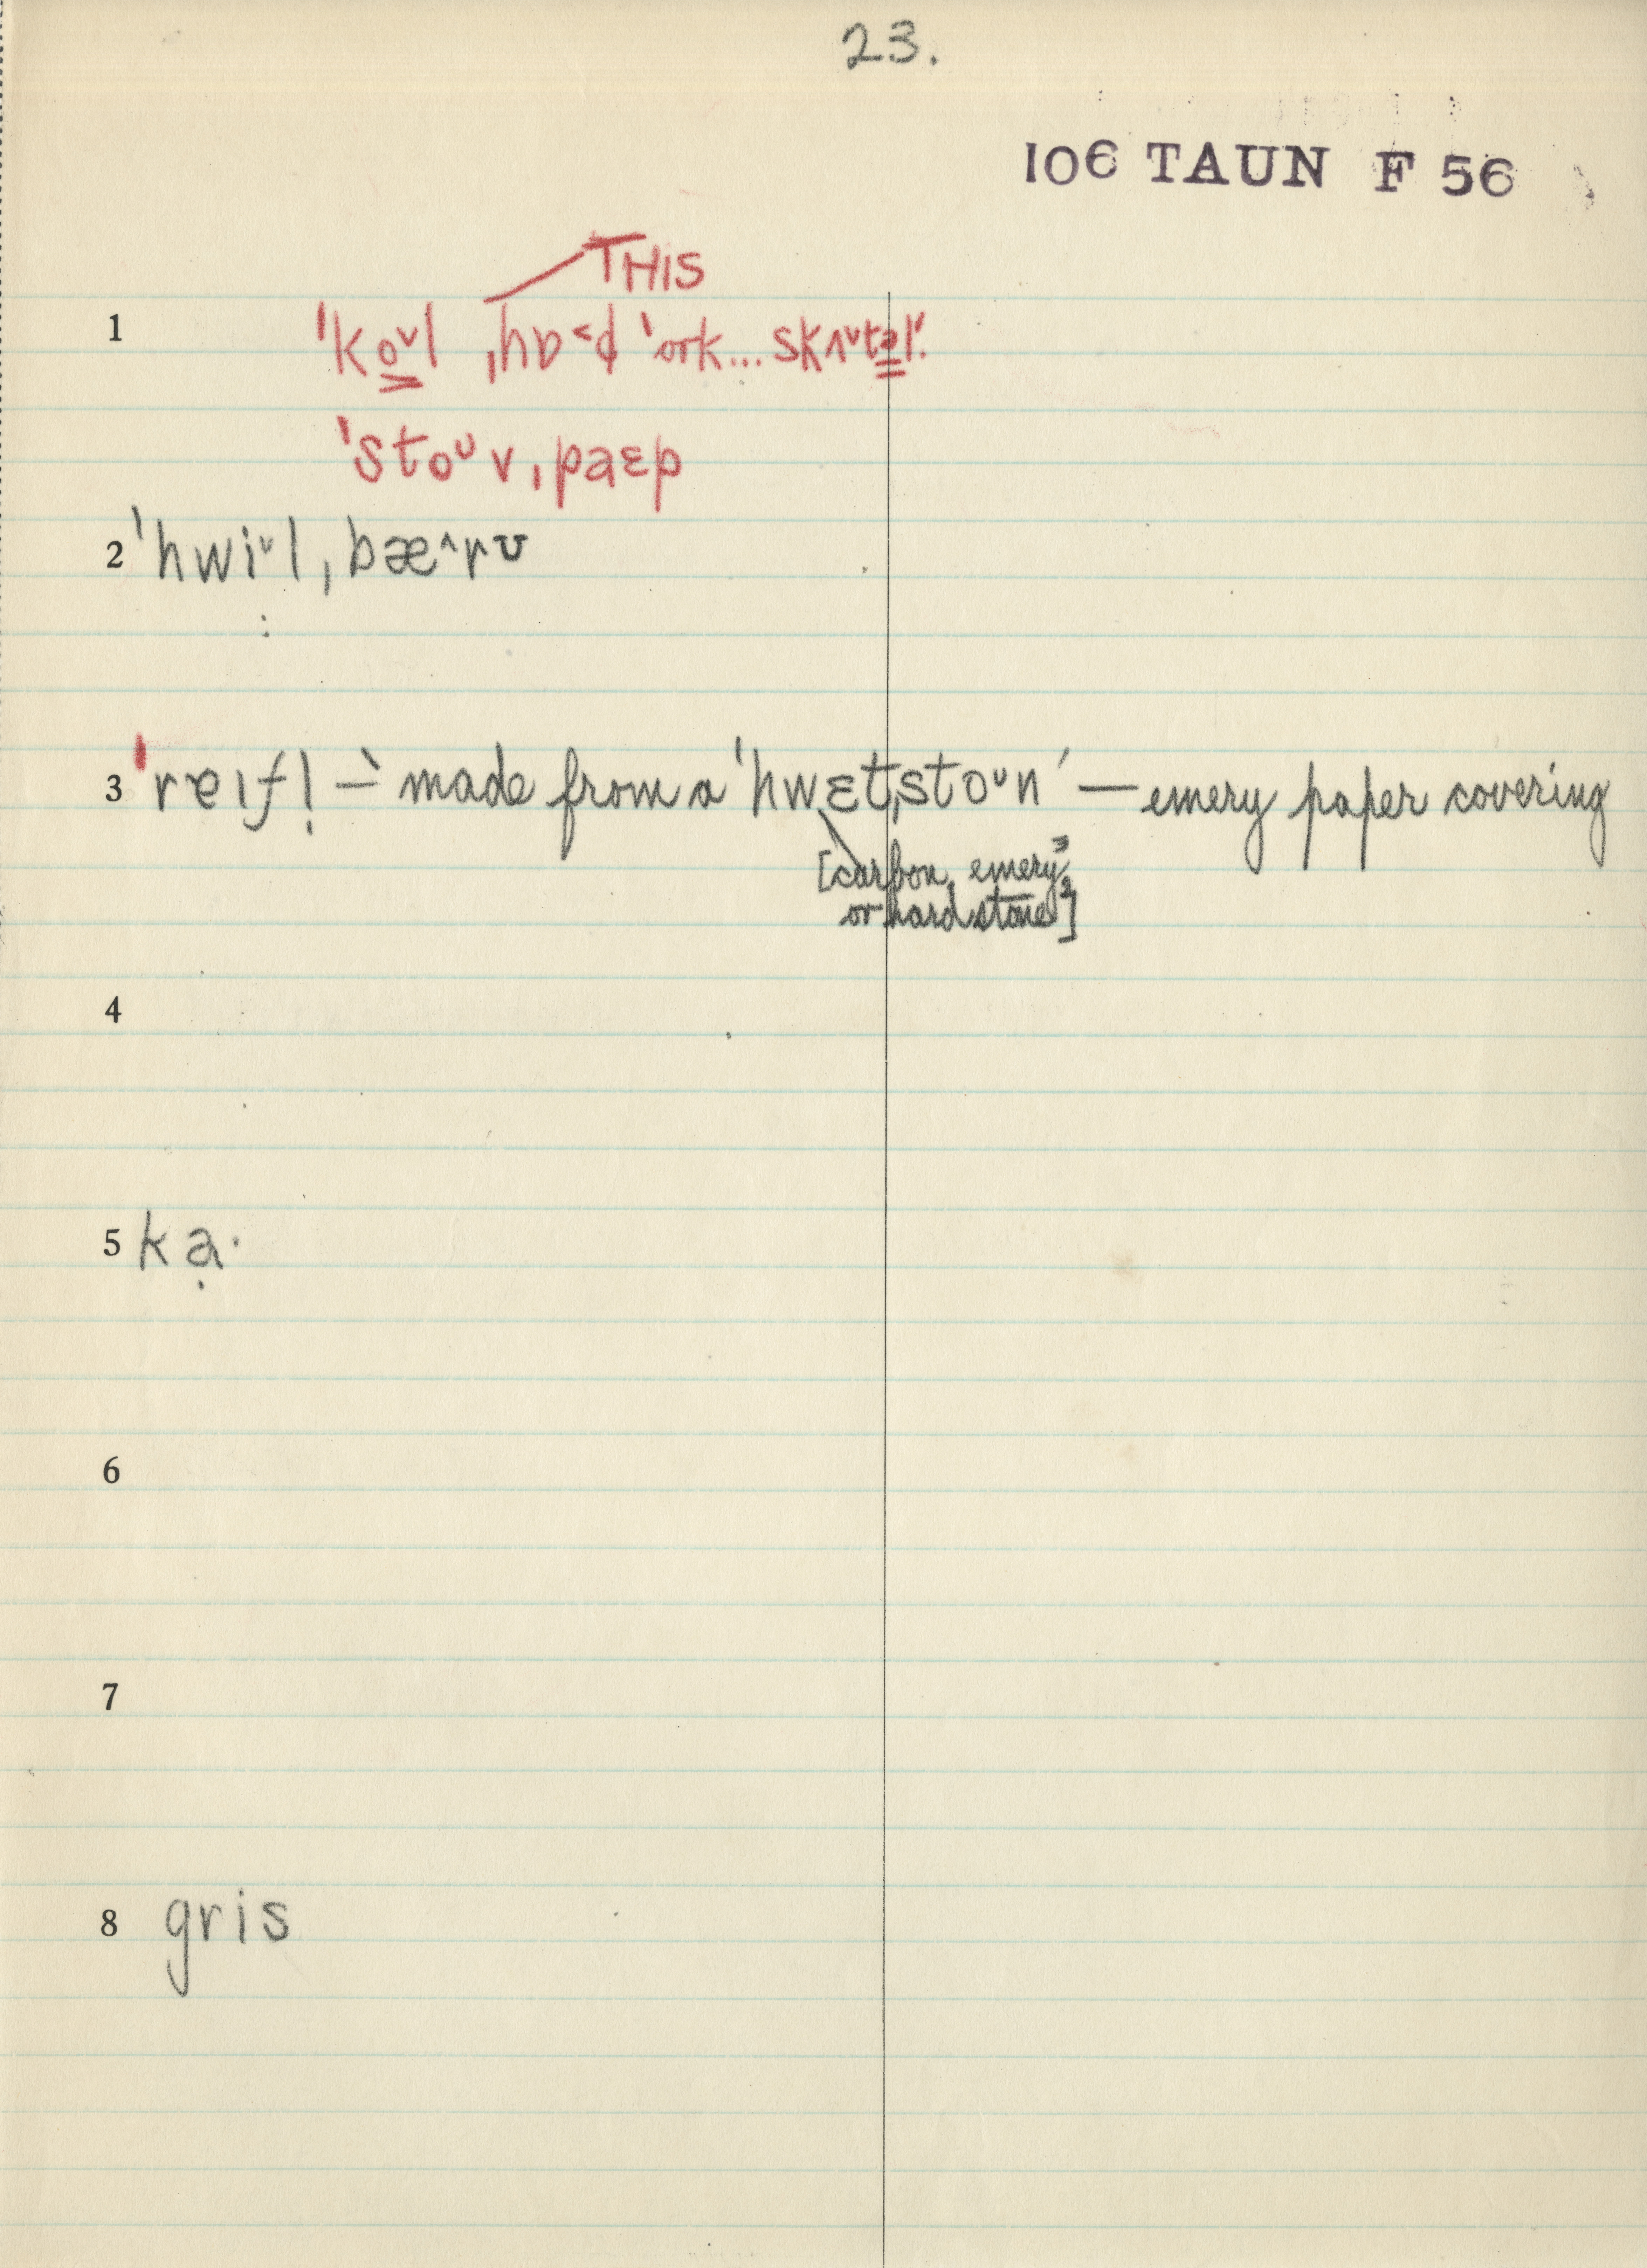 23.
106 TAUN F 56
THIS
1 ˈko̳ᵛl ˌhɒ˂d 'ork... skʌᵛtə̳l'.
ˈstoᵘvˌpaɛp
2 ˈhwiᵛlˌbæ^rʊ
3 ˈreɪf! – ` made from a ˈhwɛtˌstoᵘn ´ — emery paper covering
[carbon, emery,³
or hard stone²]
4
5 kạ·
6
7
8 gris